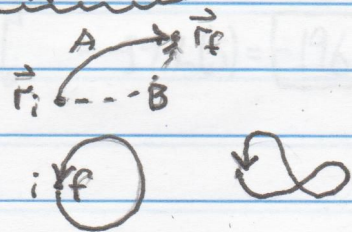 A r⃗f
r⃗i B
i f